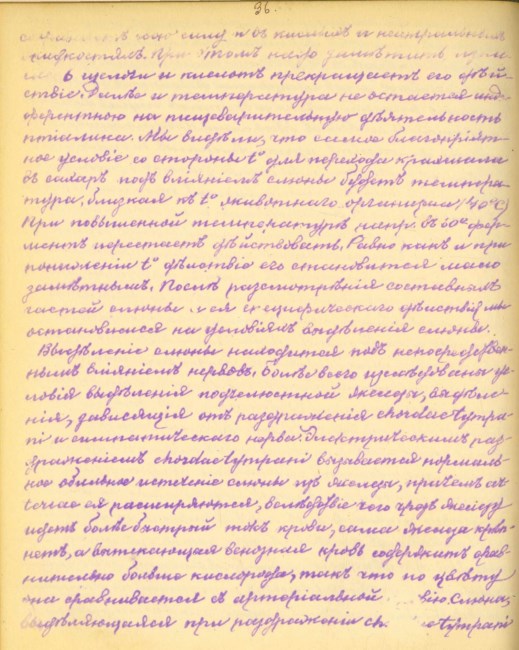 36.
силу и въ кислыхъ и неитральныхъ
жидкостяхъ. При этомъ надо замѣтить
щелочи и кислотъ прекращаетъ его дѣй
ствіе. Далѣе и температура не остается инди
ферентною на пищеварительную дѣятельность
птіалина. Мы видѣли, что самое благопріят-
ное условіе со стороны t° для перехода крахмала
въ сахаръ подъ вліяніемъ слюны будетъ темпера-
тура, близкая къ t° животнаго организма (40°C)
При повышенной температурѣ напр. въ 60° фер-
ментъ перестаетъ дѣйствовать. Равно какъ и при
пониженіи t° дѣйствіе его становится мало
замѣтнымъ. Послѣ разсмотрѣнія составныхъ
частей слюны и ея специфическаго дѣйствія мы
остановимся на условіяхъ выдѣленія слюны.
Выдѣленіе слюны находится подъ непосредствен-
нымъ вліяніемъ нервовъ. Болѣе всего изслѣдованы ус
ловія выдѣленія подчелюстной железы, выдѣле-
нія, зависящія отъ раздраженія chordae tympa-
ni и симпатическаго нерва. Электрическимъ раз-
драженіемъ chordae tympani вызывается нормаль-
ное обильное истеченіе слюны изъ железы, причемъ
ея расширяются, вслѣдствіе чего чрезъ железу
идетъ болѣе быстрый токъ крови, сама железа крас-
нѣетъ, а вытекающая венозная кровь содержитъ срав-
нительно больше кислорода, такъ что по цвѣту
она сравнивается съ артеріальной Слюна,
выдѣляющаяся при раздраженіи ch tympani